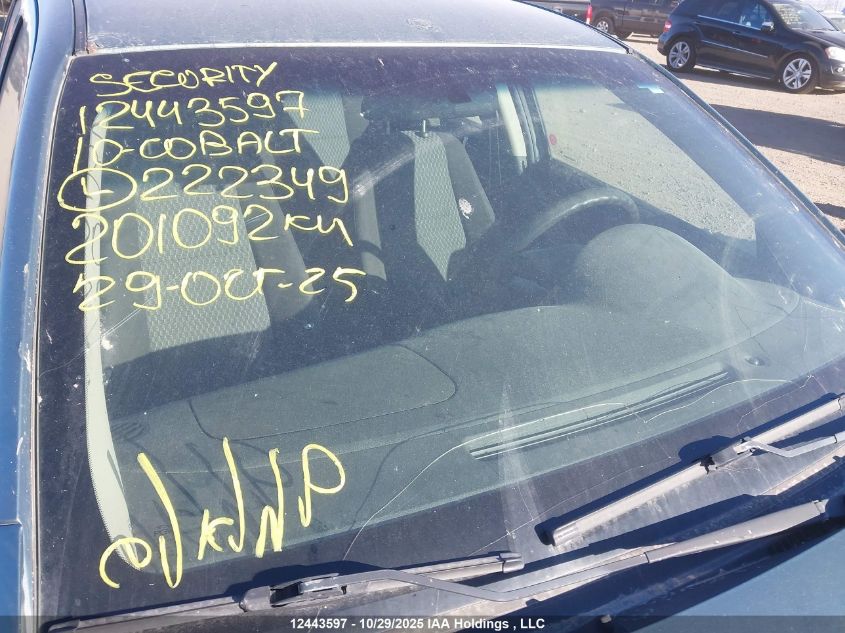 SECURITY
12443597
10-COBALT
222349
201092KM
29-OCT-25
12443597 - 10/29/2025 IAA Holdings , LLC